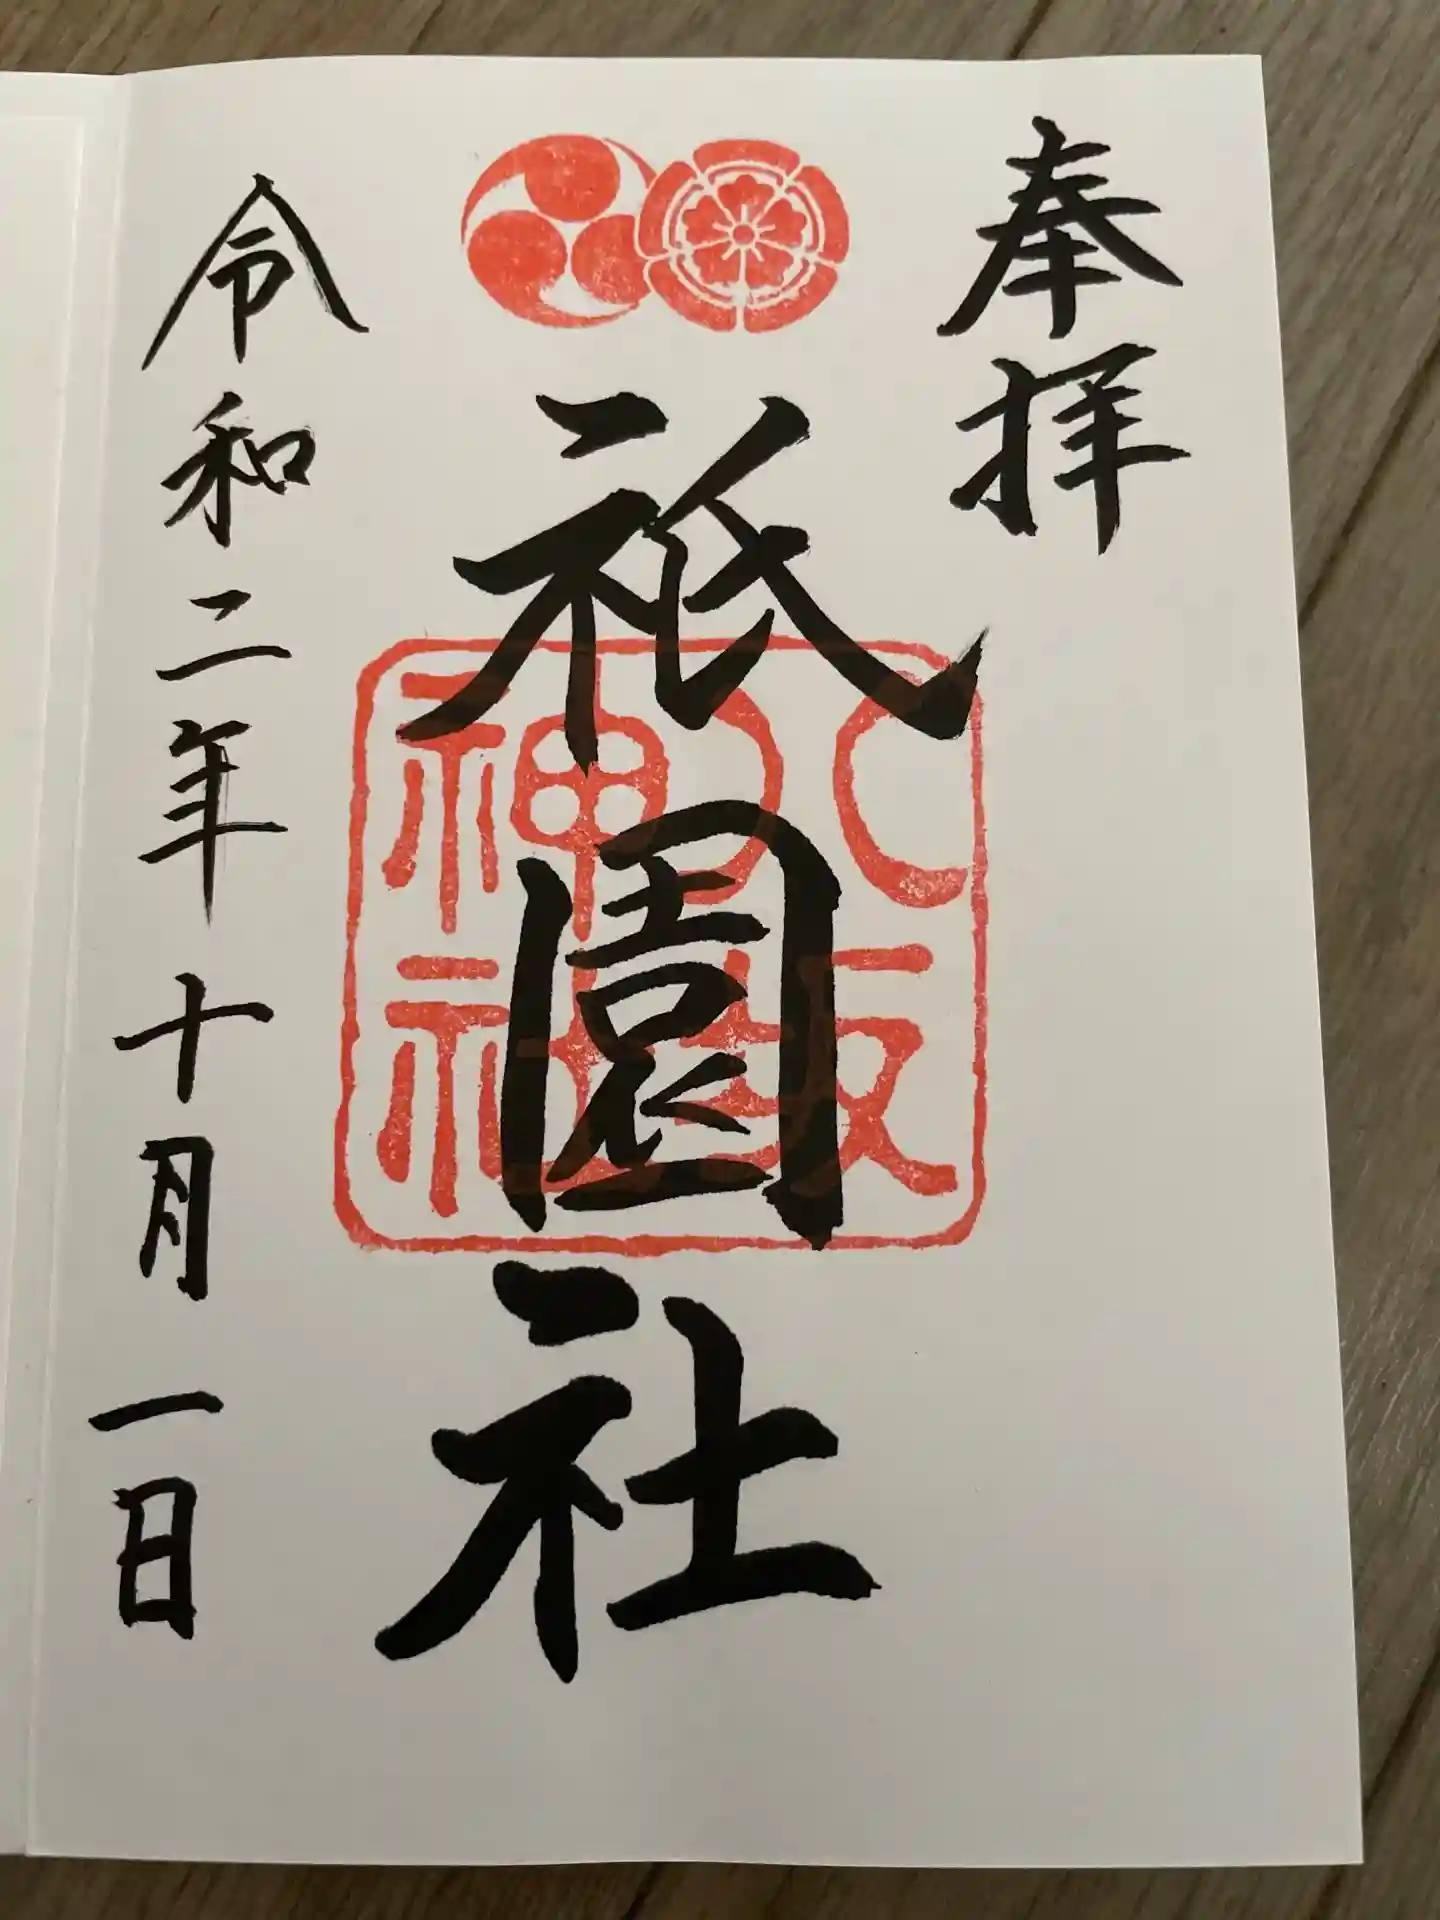 奉拝
祇園社
八坂
神社
令和二年十月一日